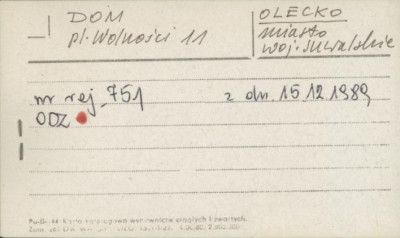 DOM
pl. Wolności 11
OLECKO
miasto
woj. suwalskie
nr rej. 751 z dn. 15.12.1989
ODZ